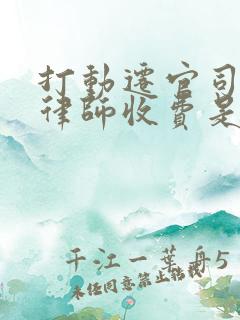 打動遷官司
律師收費是
千江一葉舟5
未经同意禁止转载